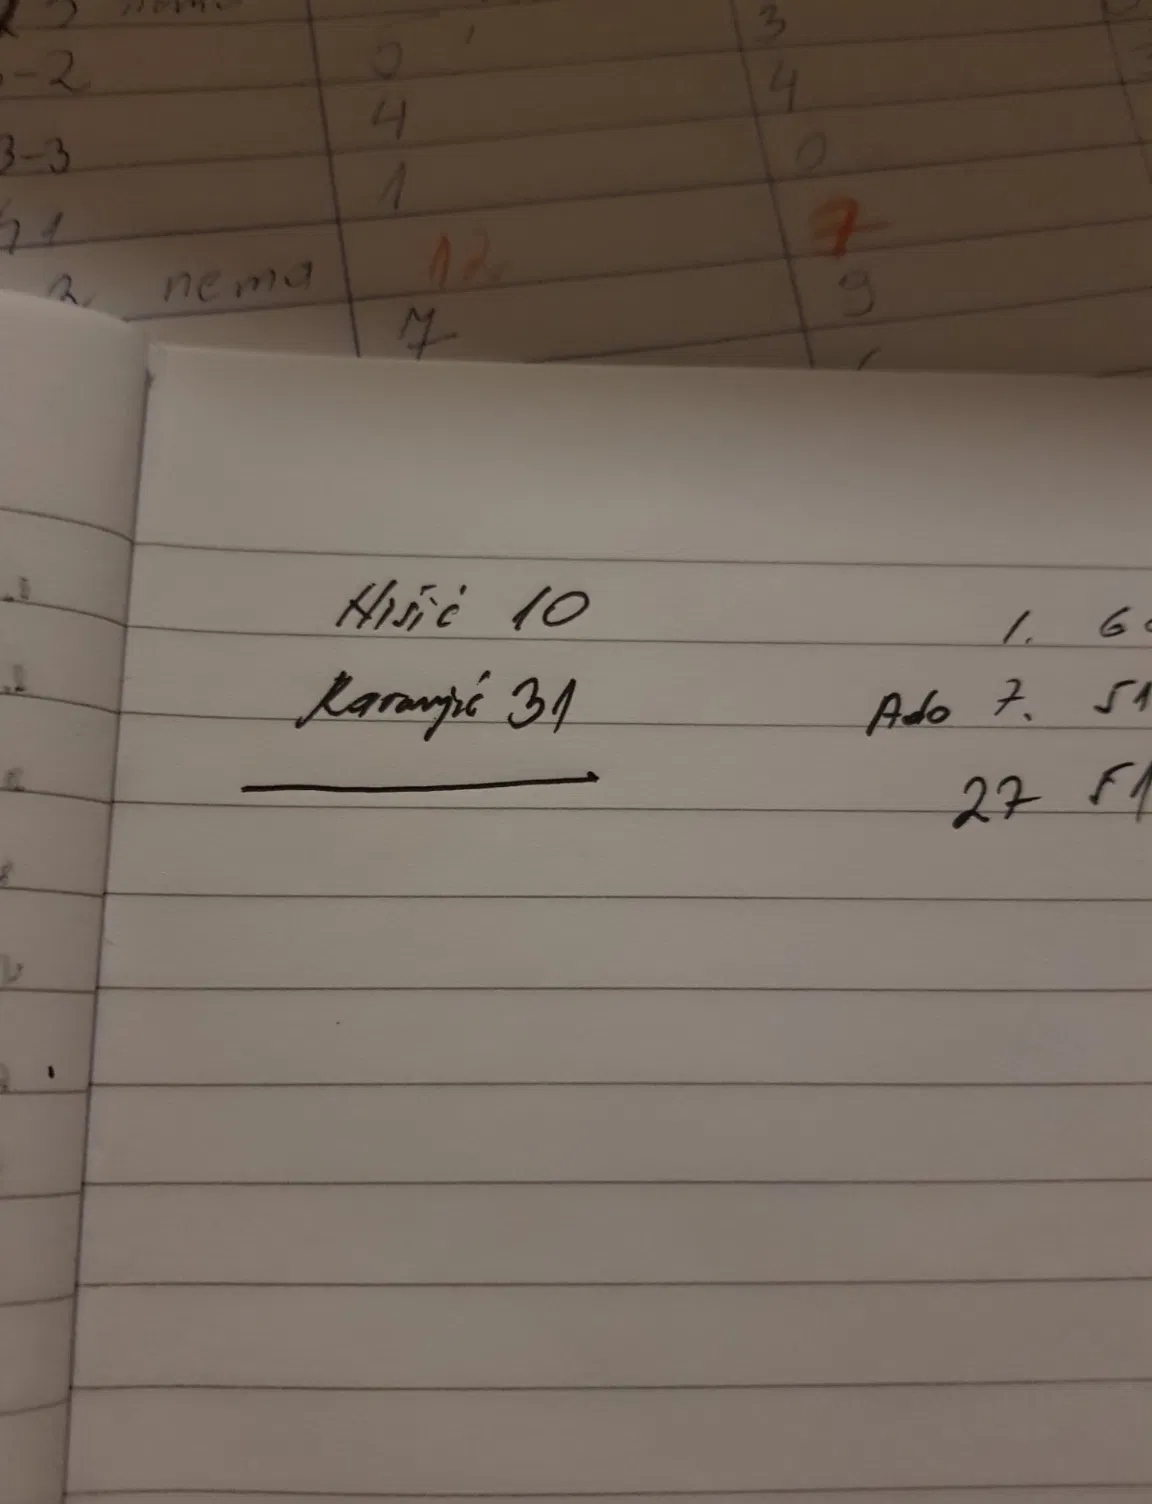 -2
0
3
4
4
3-3
1
0
12
7
nema
7
9
Hišić 10
Karanjić 31
1. 6
Ado 7. 51
27 51